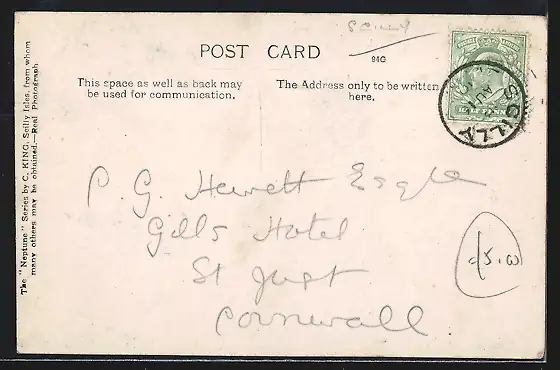 SCILLY
POST CARD
84G
This space as well as back may
be used for communication.
The Address only to be written
here.
The "Neptune" Series by C. KING, Scilly Isles, from whom
many others may be obtained.—Real Photograph
SCILLY
P. G. Hewett Esqre
Gills Hotel
St Just
Cornwall